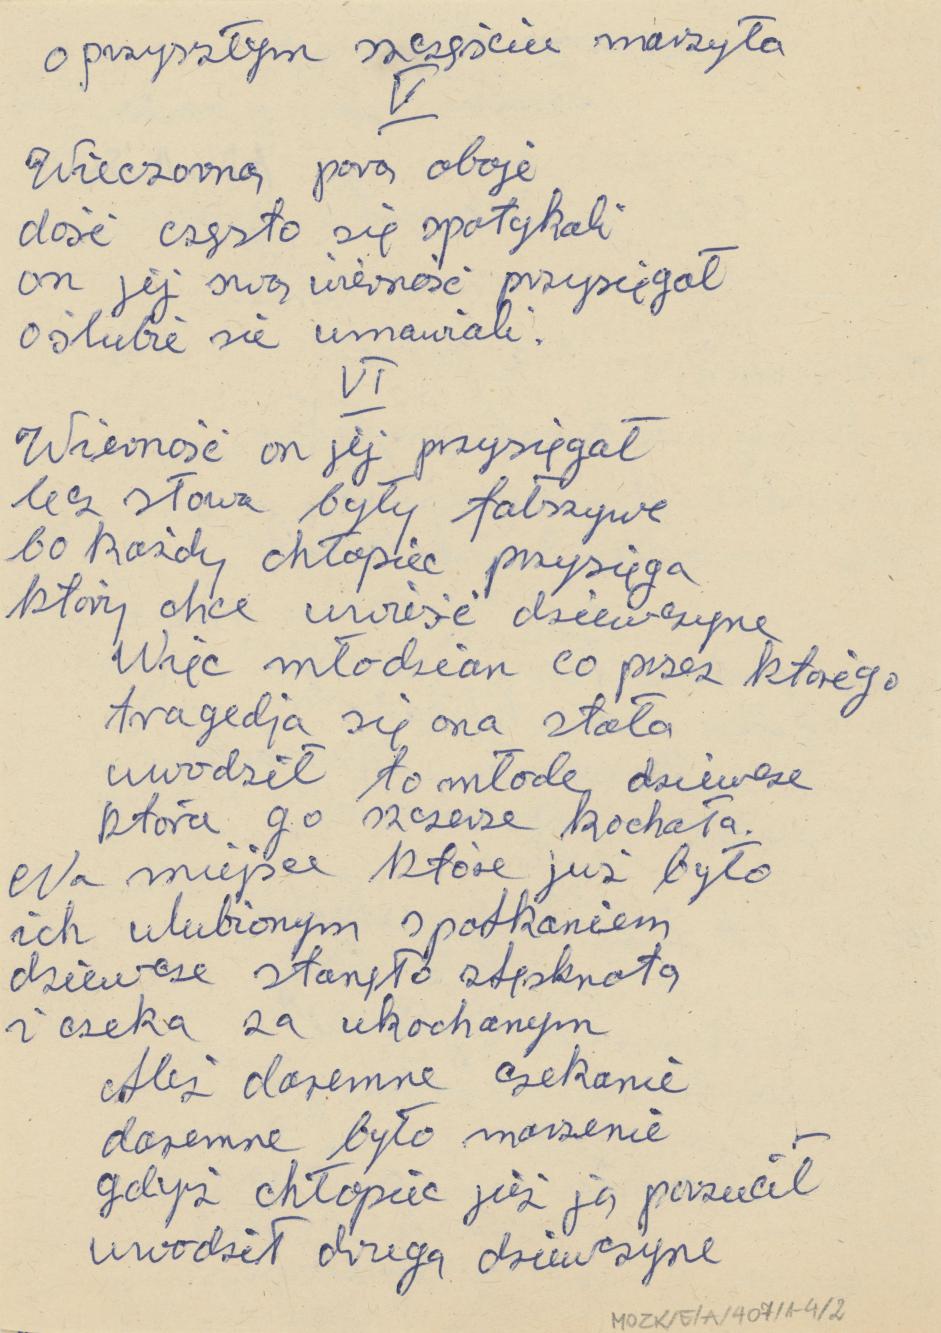 o przyszłym szczęściu marzyła
V
Wieczorną porą oboje
dość często się spotykali
on jej swą wierność przysięgał
o ślubie sie umawiali.
VI
Wierność on jej przysięgał
lecz słowa były fałszywe
bo każdy chłopiec przysięga
który chce uwieść dziewczyne
Więc młodzian co przez którego
tragedja się ona stała
uwodził to młode dziewcze
która go szczerze kochała.
Na miejsce które już było
ich ulubionym spotkaniem
dziewcze stanęło stęsknotą
i czeka za ukochanym
Ależ daremne czekanie
daremne było marzenie
gdyż chłopiec już ją porzucił
uwodził drugą dziewczyne
MOZK/E/A/407/1-4/2